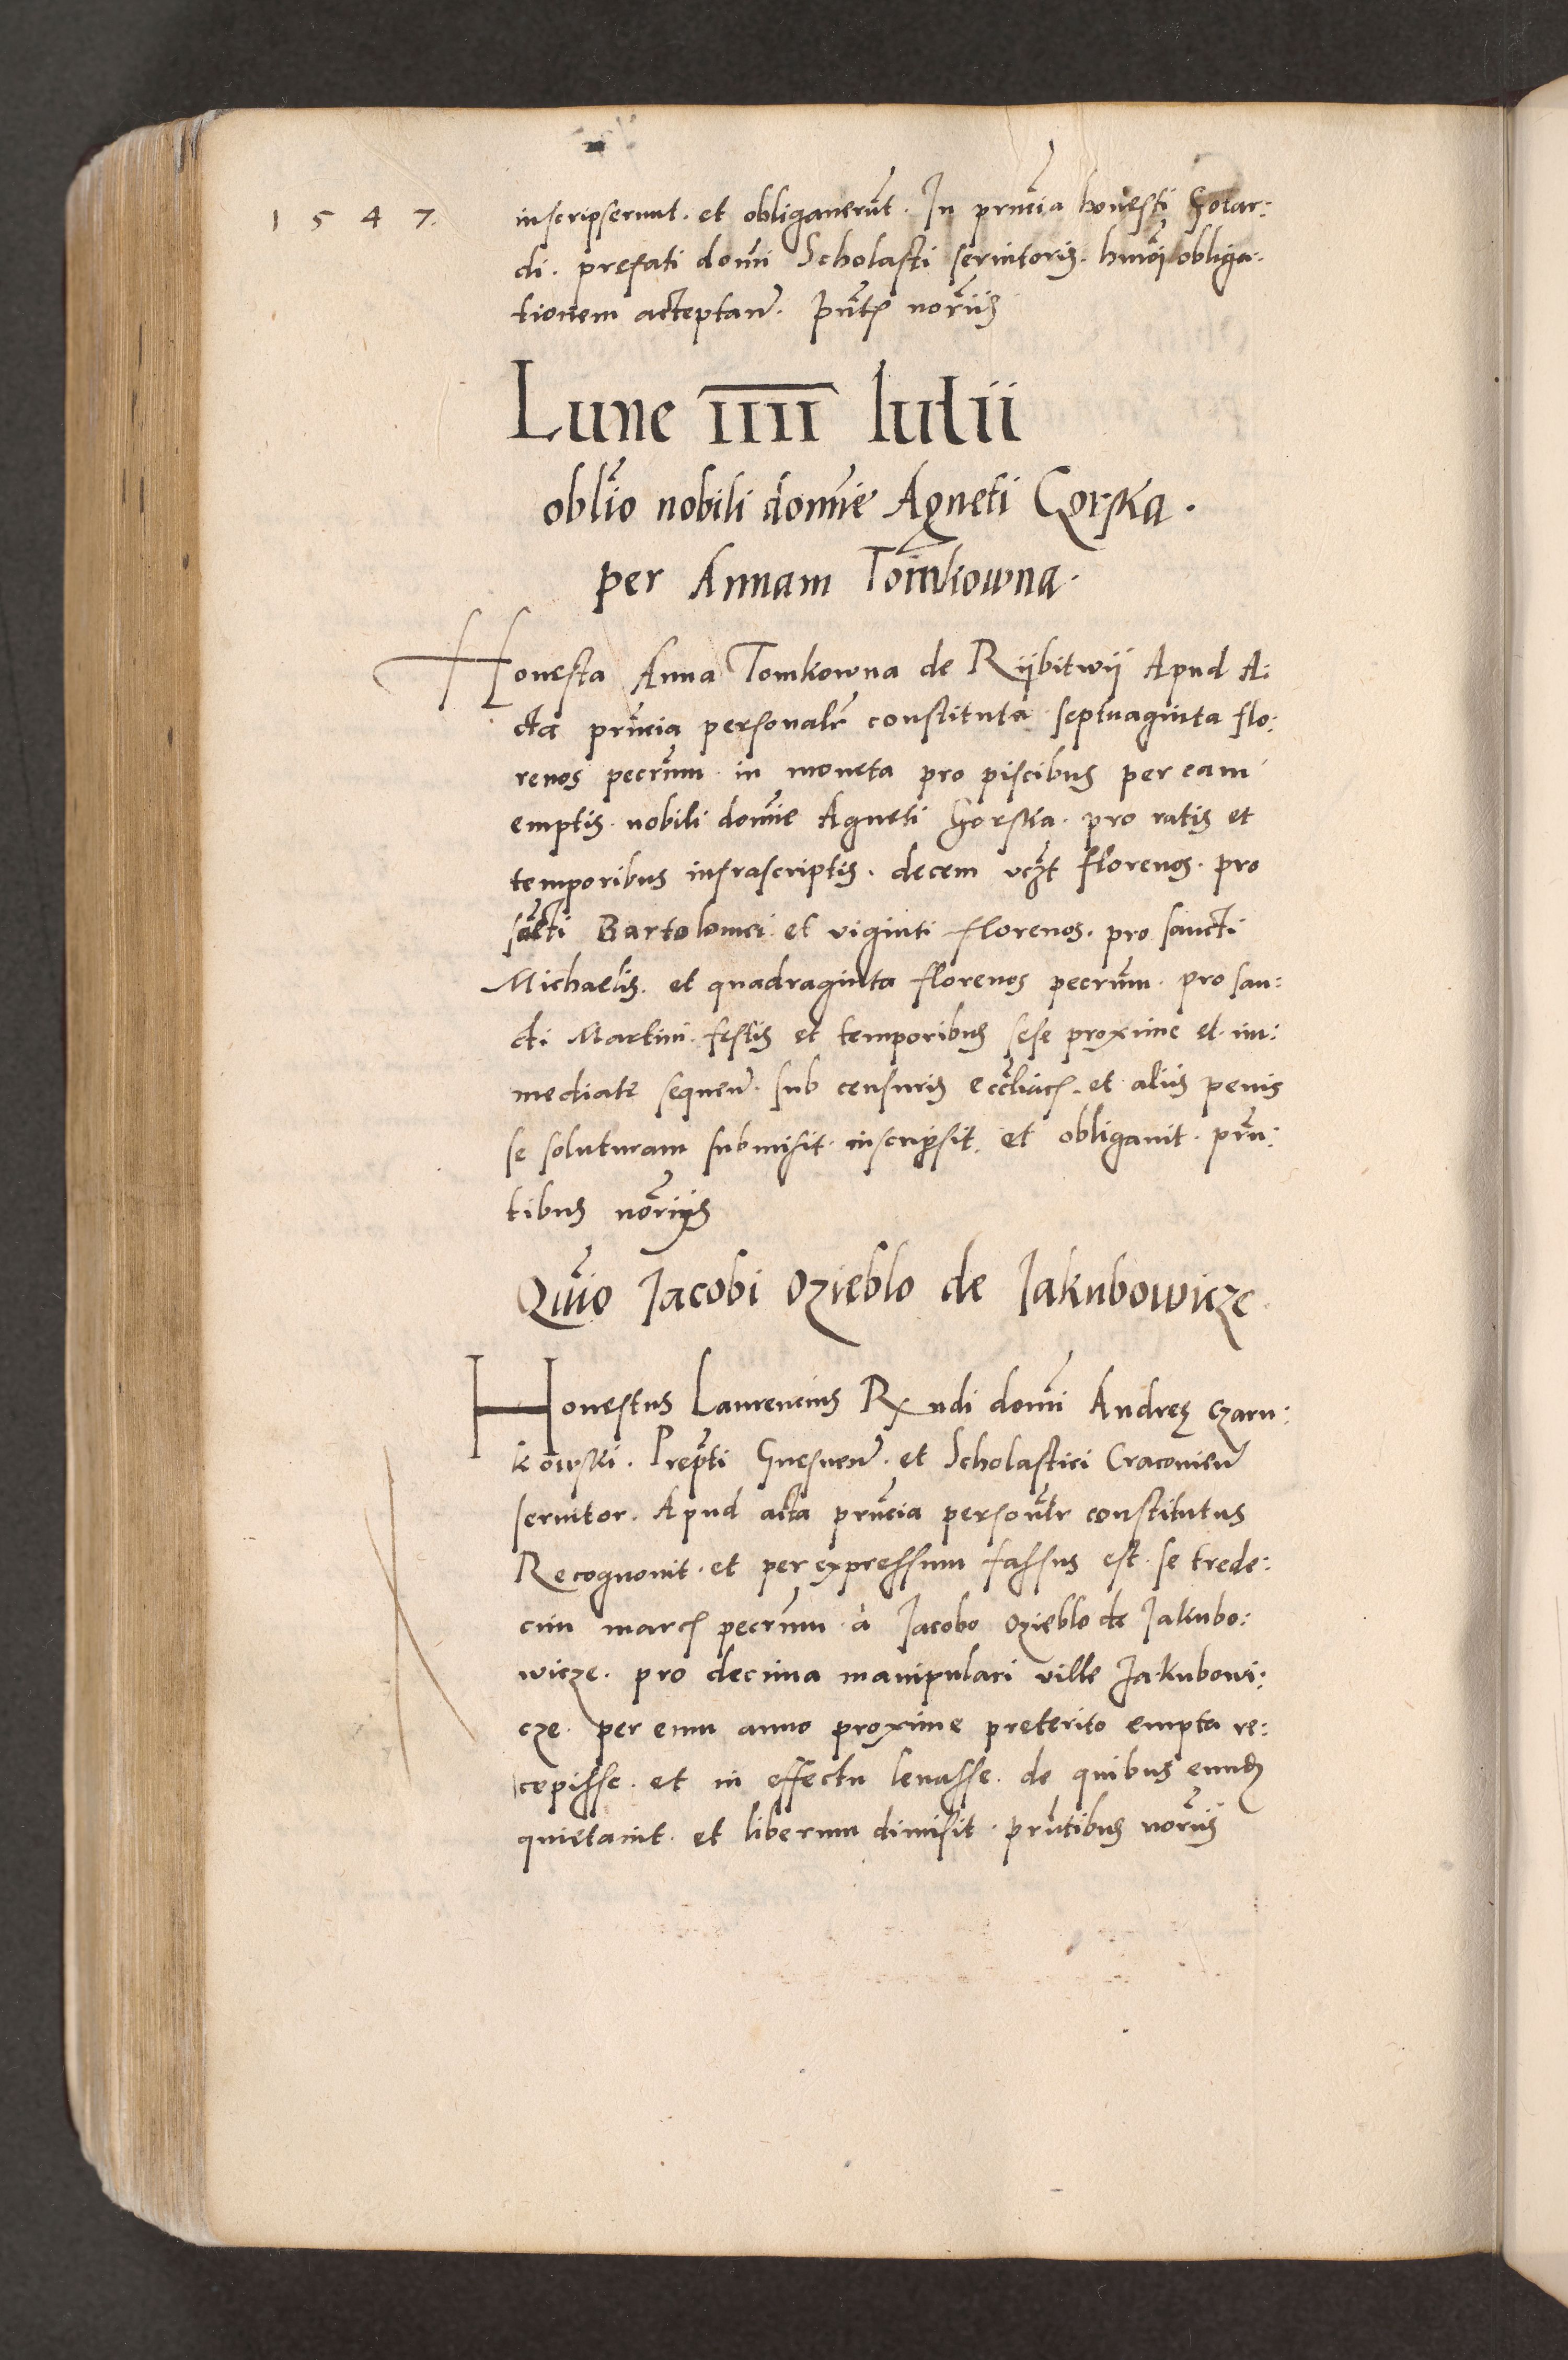 1547.
inscripserunt. et obligaverūt. In prn̄cia honesti Golar:
di. prefati domī Scholasti servitoris. hmōi obliga:
tionem acceptan̄. pn̄tꝭ nor̄iis
Lune IIII Iulii
obl̄io nobili domīe Agneti Gorska.
per Annam Tomkowna.
Honesta Anna Tomkowna de Rijbitwij Apud A:
cta prn̄cia personalr̄ constituta septuaginta flo:
renos pecr̄um in moneta pro piscibus per eam
emptis. nobili domīe Agneti Gorska. pro ratis et
temporibus infrascriptis. decem vcz̄t florenos. pro
sācti Bartolomei. et viginti florenos. pro sancti
Michaelis. et quadraginta florenos pecr̄um. pro san:
cti Martini. festis et temporibus sese proxime et im:
mediate sequen̄. sub censuris eccl̄iacꝭ. et aliis penis
se soluturam submisit. inscripsit. et obligavit. prn̄:
tibus nor̄iys
Quīo Jacobi Ozieblo de Jakubowicze.
Honestus Laurencius Rx̄ndi domī Andreę Czarn:
kowski. Prep̄ti Gnesnen̄. et Scholastici Cracovien̄
servitor. Apud acta prn̄cia person̄lr constitutus
Recognovit. et per expressum fassus est. se trede:
cim marcꝭ pecr̄um à Jacobo Ozieblo de Jakubo:
wicze. pro decima manipulari ville Jakubowi:
cze. per eum anno proxime preterito empta re:
cepisse. et in effectu levasse. de quibus eundꝫ
quietavit. et liberum dimisit. prn̄tibus nor̄iis